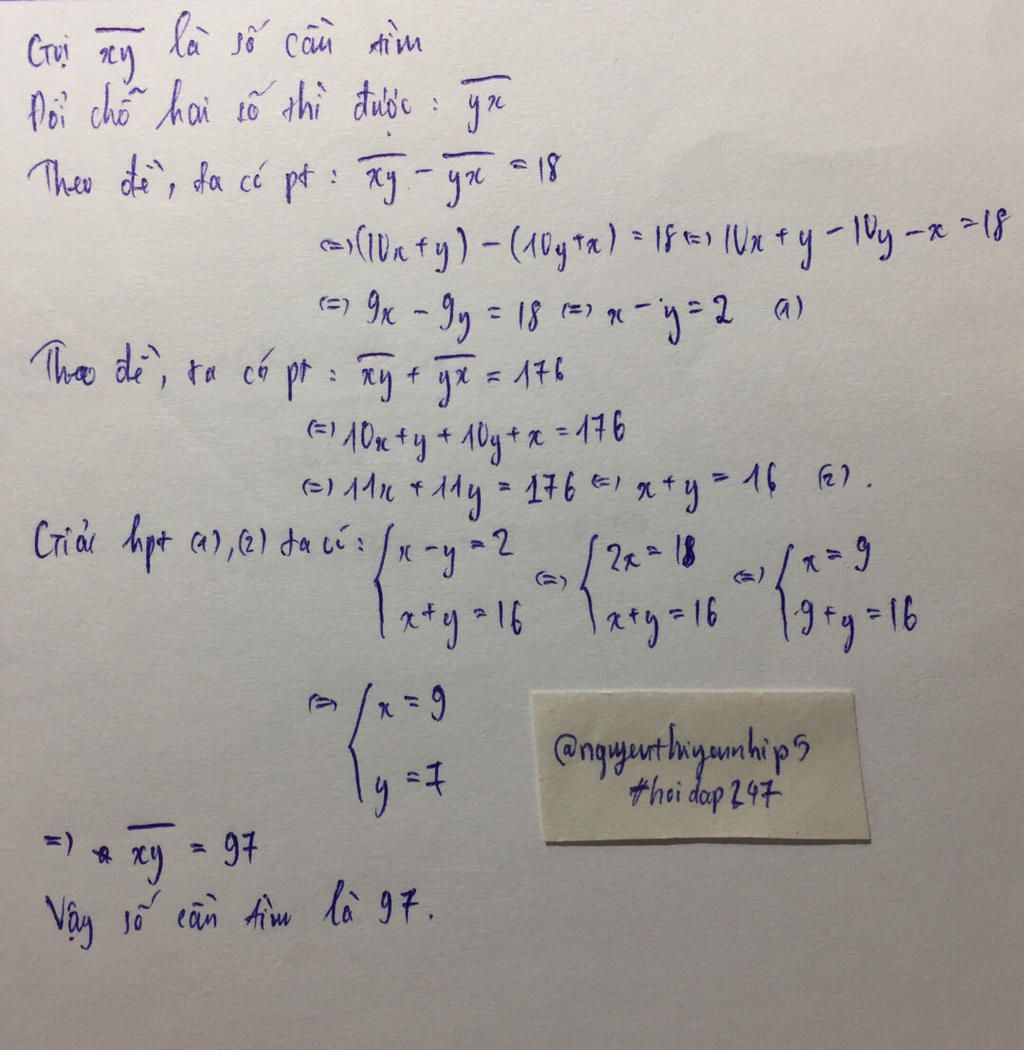 Gọi xy̅ là số cần tìm
Đổi chỗ hai số thì được : y̅x̅
Theo đề, ta có pt : x̅y̅ - y̅x̅ = 18
⇔ (10x+y) - (10y+x) = 18 ⇔ 10x + y - 10y - x = 18
⇔ 9x - 9y = 18 ⇔ x - y = 2 (1)
Theo đề, ta có pt : x̅y̅ + y̅x̅ = 176
⇔ 10x + y + 10y + x = 176
⇔ 11x + 11y = 176 ⇔ x + y = 16 (2).
Giải hpt (1), (2) ta có : { x - y = 2 ⇔ { 2x = 18 ⇔ { x = 9
x + y = 16 x + y = 16 9 + y = 16
⇔ { x = 9
y = 7
@nguyenthiyennhip5
#hoidap247
=) x̅y̅ = 97
Vậy số cần tìm là 97.